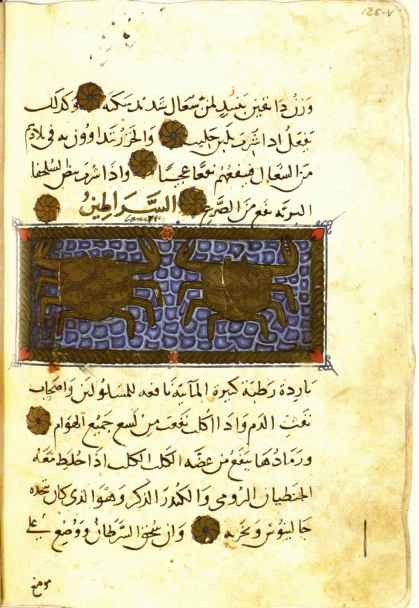 وزن دانقين بنبيذ لمن سعال شديد سكنه وكذلك
يفعل اذا شرب بلبن حليب والحزز شدا ووزن به في
من السعال فينفعهم نفعا عجيبا واذا شرب
البرية نفع من الصرع السراطين
باردة رطبة كثيرة المائية نافعة للمسلولين واصحاب
نفث الدم واذا اكلت نفعت من لسع جميع الهوام
ورمادها ينفع من عضة الكلب الكلب اذا خلط معه
الجنطيان الرومي والكندر الذكر وهو الذي كان
جالينوس وان سحق السرطان ووضع على
موضع